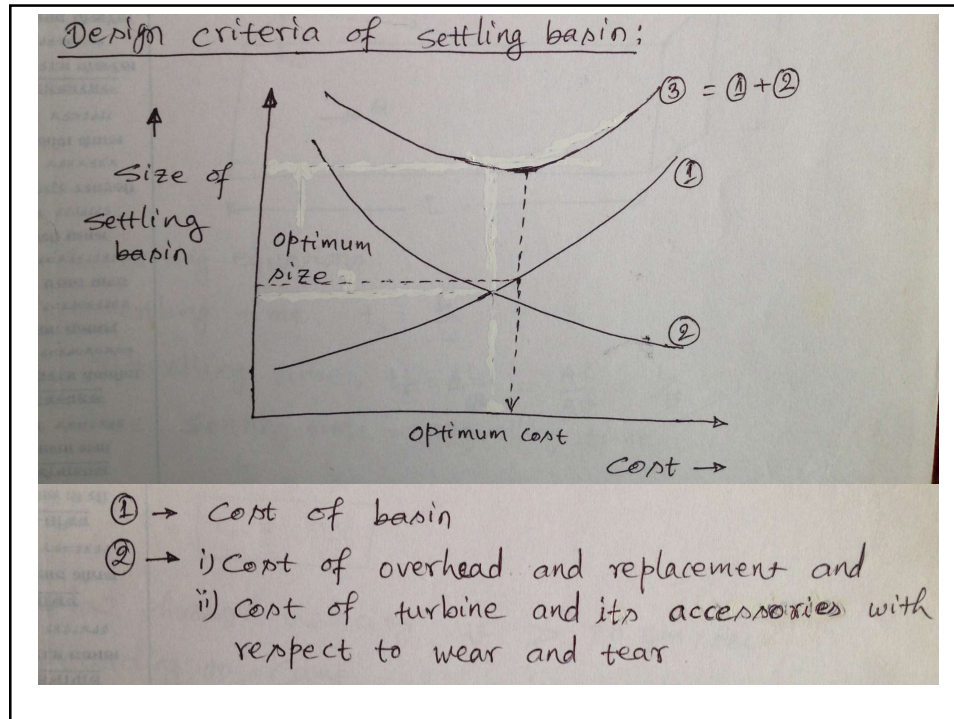 Design criteria of settling basin:
③ = ① + ②
Size of
settling
basin
①
optimum
size
②
optimum cost
cost →
① → cost of basin
② → i) Cost of overhead and replacement and
ii) cost of turbine and its accessories with
respect to wear and tear